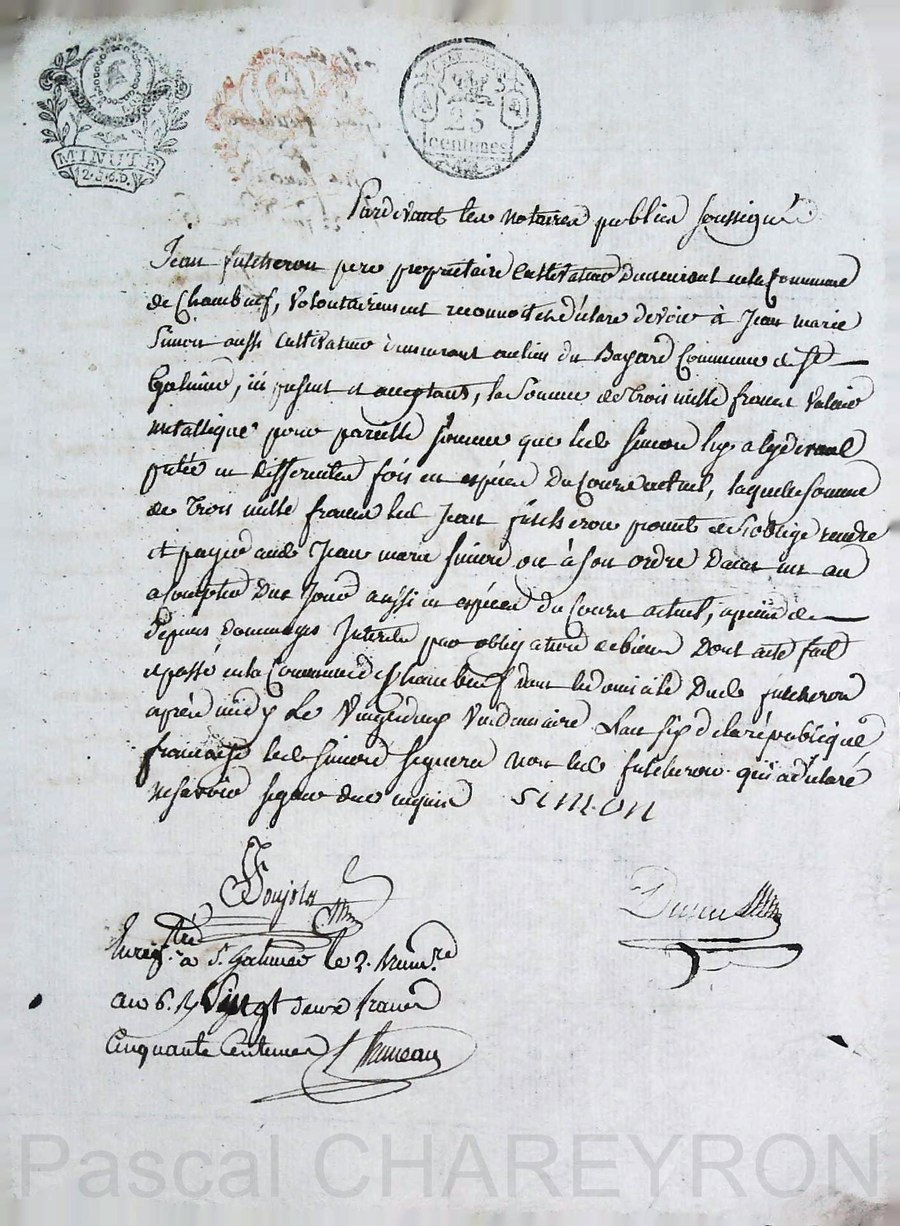 MINUTE
12.5.6.D.
25
centimes
Pardevant les notaires publics soussignés
Jean fulcheron pere propriétaire Cultivateur demeurant en la Commune
de Chambœuf, volontairement reconnoit et déclare devoir à Jean marie
Simon aussi Cultivateur demeurant au lieu du Bayard Commune de St
Galmier, ici présent et acceptant, la Somme de Trois mille francs valeur
métallique pour pareille Somme que led Simon luy a cy devant
prêté en differentes fois en espèces du Cours actuel, laquelle Somme
de Trois mille francs led Jean fulcheron promet et s'oblige rendre
et payer aud Jean marie Simon ou à son ordre Dans un an
a Compter Du Jour aussi en espèces du Cours actuel, a peine de
Depens Dommages Interets par obligation de biens Dont acte fait
et passé en la Commune de Chambœuf dans le domicile Dud fulcheron
après midy Le Vingt deux Vendemiaire L'an six de la république
francaise led Simon signera non led fulcheron qui a declaré
ne savoir signer de ce enquis Simon
Enregtré à St Galmier le 2. brumre
an 6. Ry Vingt deux francs
Cinquante Centimes
Pascal CHAREYRON